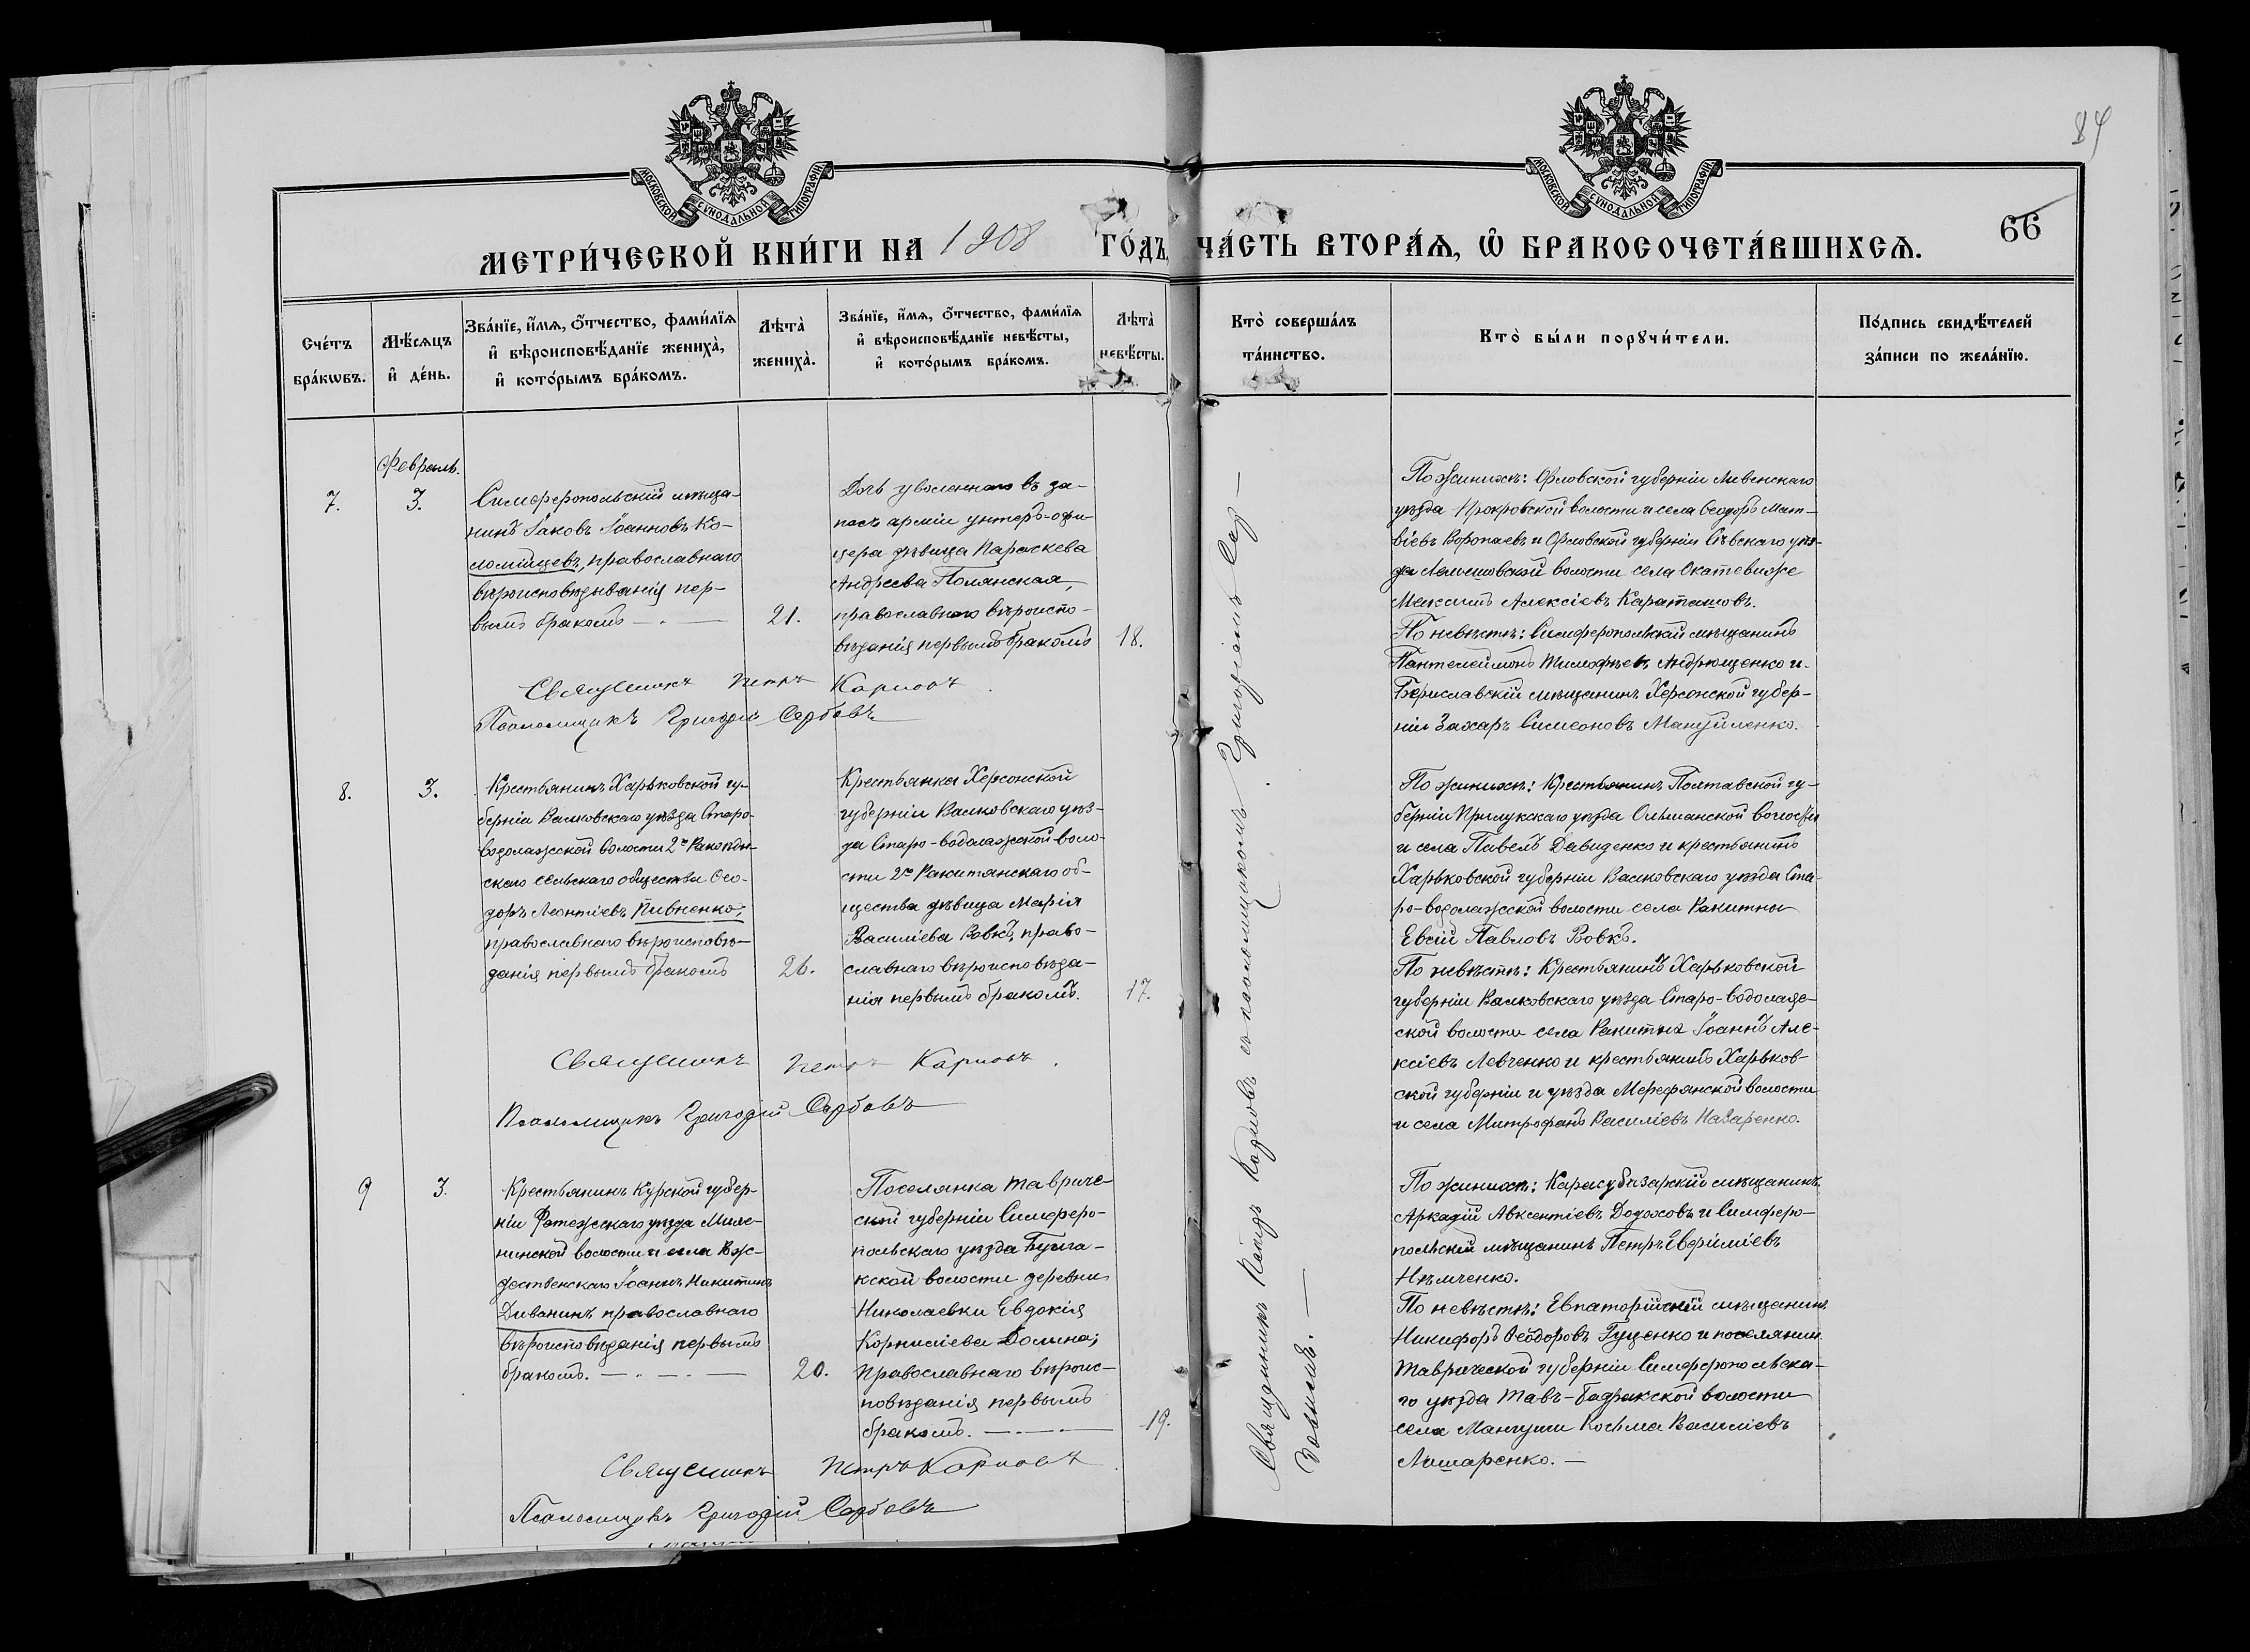 84
МОСКОВСКОЙ СУНОДАЛЬНОЙ ТИПОГРАФІИ
МОСКОВСКОЙ СУНОДАЛЬНОЙ ТИПОГРАФІИ
МЕТРИ́ЧЕСКОЙ КНИ́ГИ НА 1908 ГО́ДЪ,
ЧА́СТЬ ВТОРА́Ѧ, Ѡ҆ БРАКОСОЧЕТА́ВШИХСѦ.
66
Сче́тъ
бра́кѡвъ.
Мѣ́сѧцъ
и҆ де́нь.
Зва́нїе, и҆́мѧ, ѻ҆́тчество, фами́лїѧ
и҆ вѣроисповѣ́данїе жениха̀,
и҆ кото́рымъ бра́комъ.
Лѣта̀
жениха̀.
Зва́нїе, и҆́мѧ, ѻ҆́тчество, фами́лїѧ
и҆ вѣроисповѣ́данїе невѣ́сты,
и҆ кото́рымъ бра́комъ.
Лѣта̀
невѣ́сты.
Кто̀ соверша́лъ
та́инство.
Кто̀ бы́ли порꙋчи́тели.
По́дпись свидѣ́телей
за́писи по жела́нїю.
Февраль.
7.
3.
Симферопольскій мѣща-
нинъ Іаковъ Іоанновъ Ко-
ломійцевъ, православнаго
вѣроисповѣдыванія пер-
вымъ бракомъ
21.
Дочь уволеннаго въ за-
пасъ арміи унтеръ-офи-
цера дѣвица Параскева
Андреева Полянская,
православнаго вѣроиспо-
вѣданія первымъ бракомъ
18.
Священникъ Петръ Карповъ.
Псаломщикъ Григорій Сербовъ
По женихѣ: Орловской губерніи Ливенскаго
уѣзда Покровской волости и села Ѳеодоръ Мат-
віевъ Воропаевъ и Орловской губерніи Сѣвскаго уѣз-
да волости села
Максимъ Алексіевъ Караташовъ.
По невѣстѣ: Симферопольскій мѣщанинъ
Пантелеймонъ Тимофѣевъ Андрющенко и
Бериславскій мѣщанинъ Херсонской губер-
ніи Захаръ Симеоновъ Мануйленко.
8.
3.
Крестьянинъ Харьковской гу-
берніи Валковскаго уѣзда Старо-
водолажской волости 2го
скаго сельскаго общества Ѳео-
доръ Леонтіевъ Пивненко,
православнаго вѣроисповѣ-
данія первымъ бракомъ
26.
Крестьянка Херсонской
губерніи Валковскаго уѣз-
да Старо-водолажской воло-
сти 2го Ракитянскаго об-
щества дѣвица Марія
Василіева Вовкъ, право-
славнаго вѣроисповѣда-
нія первымъ бракомъ.
17.
Священникъ Петръ Карповъ.
Псаломщикъ Григорій Сербовъ
По женихѣ: Крестьянинъ Полтавской гу-
берніи Прилукскаго уѣзда Ольшанской волости
и села Павелъ Давиденко и крестьянинъ
Харьковской губерніи Валковскаго уѣзда Ста-
ро-водолажской волости села Ракитны
Евсій Павловъ Вовкъ.
По невѣстѣ: Крестьянинъ Харьковской
губерніи Валковскаго уѣзда Старо-водолаж-
ской волости села Ракитна Іоаннъ Але-
ксіевъ Левченко и крестьянинъ Харьков-
ской губерніи и уѣзда Мерефянской волости
и села Митрофанъ Василіевъ Назаренко.
9
3.
Крестьянинъ Курской губер-
ніи Фатежскаго уѣзда Миле-
нинской волости и села Рож-
дественскаго Іоаннъ Никитинъ
Диванинъ православнаго
вѣроисповѣданія первымъ
бракомъ.
20.
Поселянка Тавриче-
ской губерніи Симферо-
польскаго уѣзда Булга-
кской волости деревни
Николаевки Евдокія
Корниліева Долина,
православнаго вѣроис-
повѣданія первымъ
бракомъ.
19.
Священникъ Петръ Карповъ
Псаломщикъ Григорій Сербовъ
По женихѣ: Карасубазарскій мѣщанинъ
Аркадій Авксентіевъ Додоховъ и Симферо-
польскій мѣщанинъ Петръ Евфиміевъ
Нѣмченко.
По невѣстѣ: Евпаторійскій мѣщанинъ
Никифоръ Ѳеодоровъ Гуценко и поселянин
Таврической губерніи Симферопольска-
го уѣзда Тавъ-Бадракской волости
села Мангуши Косьма Василіевъ
Лашаренко.
Священникъ Петръ Карповъ съ псаломщикомъ Григоріемъ Сер-
бовымъ.